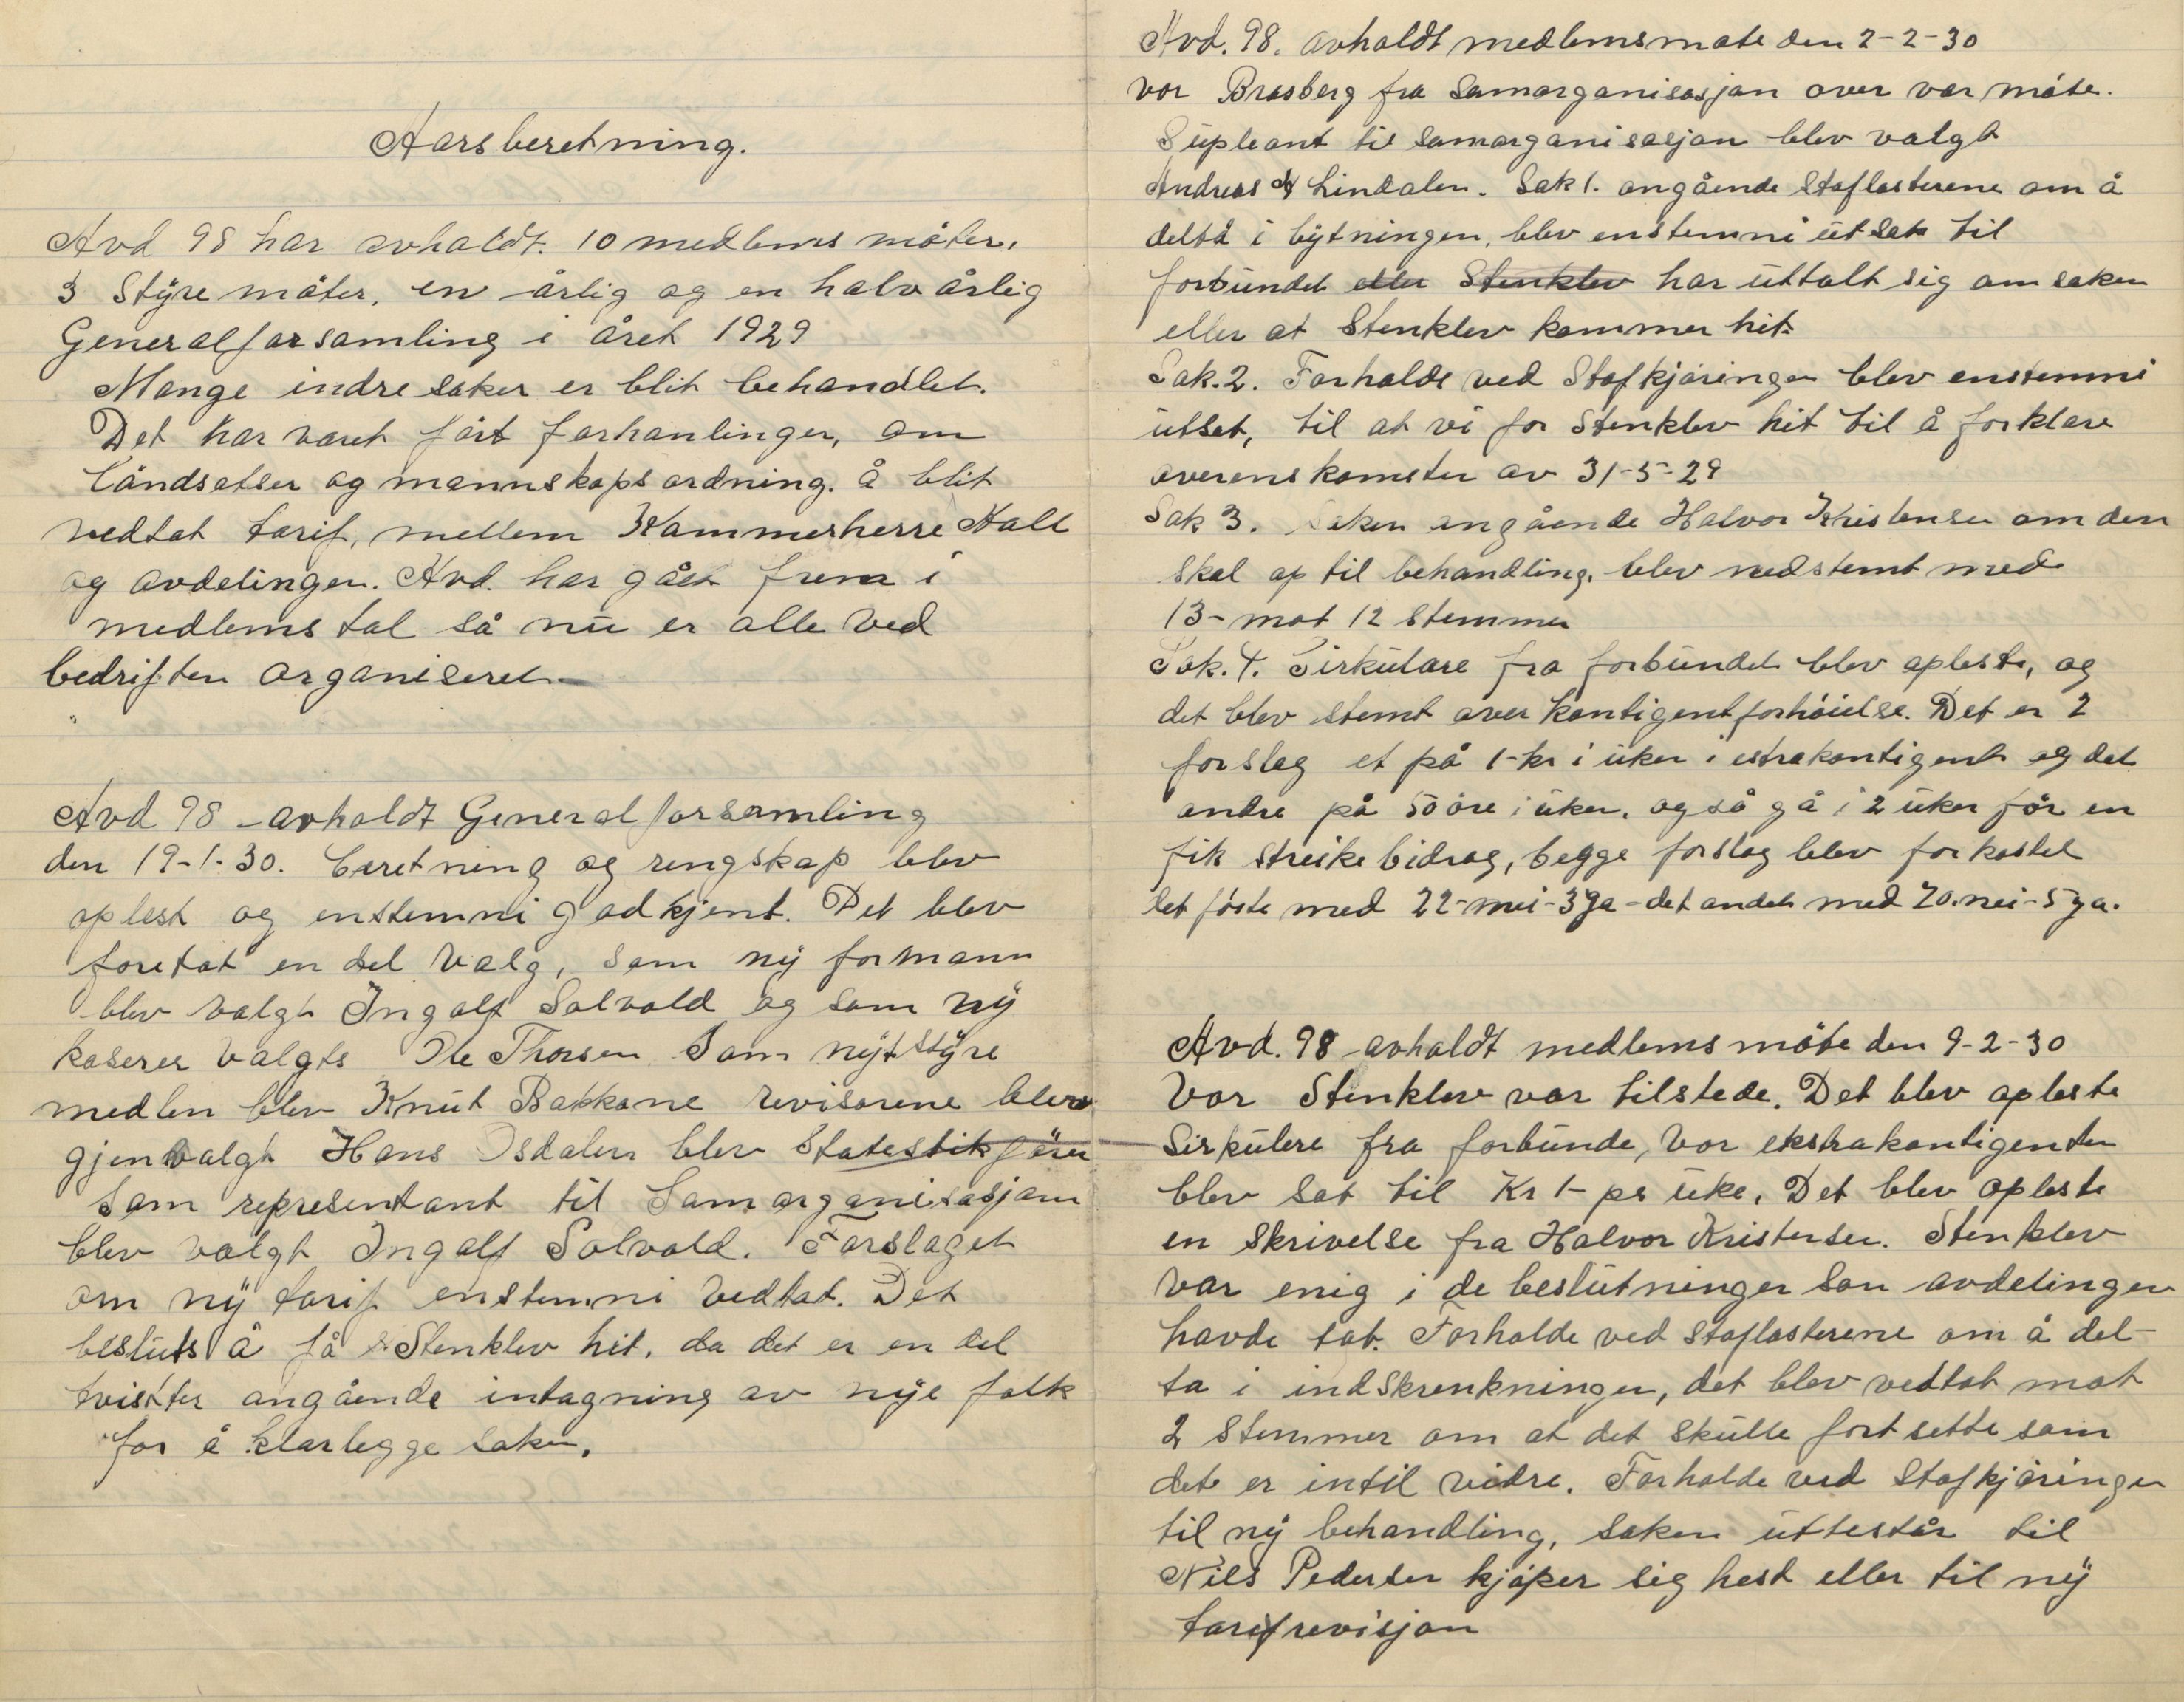 Aarsberetning.
Avd 98 har avholdt. 10 medlems möter,
3 Styremöter, en årlig og en halvårlig
Generalforsamling i året 1929
Mange indre saker er blit behandlet.
Det har været ført forhanlinger, om
Låndsatser og mannskapsordning. å blit
vedtat tarif, mellem Kammerherre Aall
og avdelingen. Avd. har gåt frem i
medlemstal så nu er alle ved
bedriften organiseret.
Avd 98 avholdt Generalforsamling
den 19-1-30. Beretning og rengskap blev
oplest og enstemni godkjent. Det blev
foretat en del valg, som ny formann
blev valgt Ingolf Solvold og som ny
kaserer valgts Ole Thorsen Som nyt styre
medlen blev Knut Bakkane revisorene blev
gjenvalgt Hans Isdalen blev Statestikförer
Som representant til Samorganisasjonn
blev valgt Ingolf Solvold. Forslaget
om ny tarif enstemni vedtat. Det
besluts å få Stenklev hit, da det er en del
tvistter angående intagning av nye folk
for å klarlegge saken.
Avd. 98. avholdt medlemsmøte den 2-2-30
vor Brasberg fra Samorganisasjon over var møte.
Supleant til Samorganisasjon blev valgt
Andreas Lindalen. Sak 1. angående Stoflasterene om å
deltå i bytningen, blev enstemni utsat til
forbundet eller Stenklev har uttalt sig om saken
eller at Stenklev kommer hit.
Sak. 2. Forholde ved Stofkjøringen blev enstemni
utsat, til at vi for Stenklev hit til å forklare
overenskomsten av 31-5-29
Sak 3. Saken angående Halvor Kristensen om den
skal op til behandling, blev nedstemt med
13- mot 12 stemmer
Sak. 4. Sirkulare fra forbundet blev opleste, og
det blev stemt over kontigentforhöielse. Det er 2
forslag et på 1- kr i uken i estrakontigent og det
andre på 50 öre i uken, og så gå i 2 uker för en
fik streikebidrag, begge forslag blev forkastet
det förste med 22-nei-3 ja-det andet med 20. nei-5 ja.
Avd. 98 avholdt medlemsmöte den 9-2-30
Vor Stenklev var tilstede. Det blev opleste
Sirkulere fra forbunde, vor ekstrakontigenten
blev sat til Kr 1- pr uke. Det blev opleste
en skrivelse fra Halvor Kristensen. Stenklev
var enig i de beslutninger son avdelingen
havde tat. Forholde ved stoflasterene om å del-
ta i indskrenkningen, det blev vedtat mot
2 stemmer om at det skulle fortsette som
det er intil vidre. Forholde ved Stofkjøringen
til ny behandling, saken uttestår til
Nils Pedersen kjøper sig hest eller til ny
tarifrevisjon